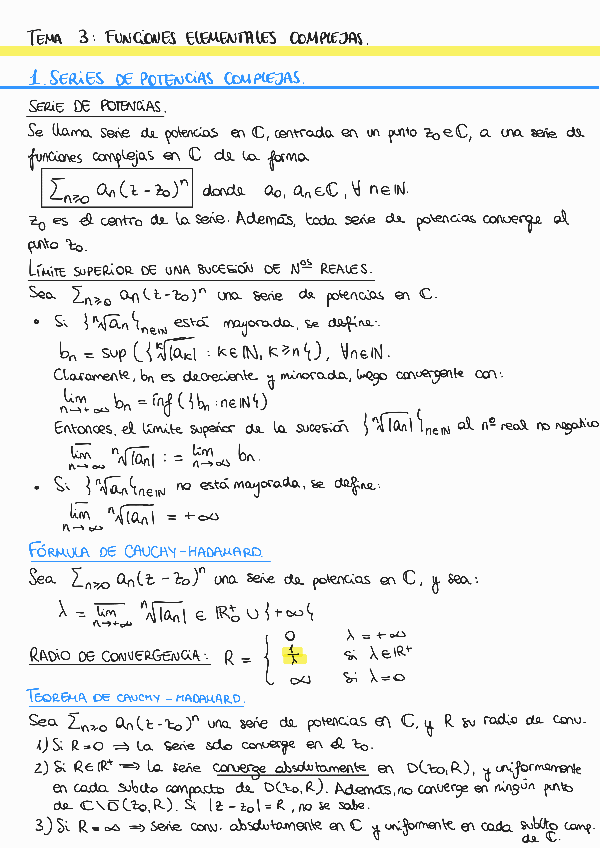 TEMA 3: FUNCIONES ELEMENTALES COMPLEJAS.
1. SERIES DE POTENCIAS COMPLEJAS.
SERIE DE POTENCIAS.
Se llama serie de potencias en ℂ, centrada en un punto z₀ ∈ ℂ, a una serie de
funciones complejas en ℂ de la forma
∑n≥0 an (z - z₀)ⁿ donde a₀, an ∈ ℂ, ∀ n ∈ ℕ.
z₀ es el centro de la serie. Además, toda serie de potencias converge al
punto z₀.
LÍMITE SUPERIOR DE UNA SUCESIÓN DE Nᵒˢ REALES.
Sea ∑n≥0 an (z - z₀)ⁿ una serie de potencias en ℂ.
• Si {ⁿ√an}n∈ℕ está mayorada, se define:
bn = sup ({ᵏ√|ak| : k ∈ ℕ, k ≥ n}), ∀n∈ℕ.
Claramente, bn es decreciente y minorada, luego convergente con:
lim n→+∞ bn = inf ({bn : n∈ℕ})
Entonces, el límite superior de la sucesión {ⁿ√|an|}n∈ℕ al nº real no negativo
l̅i̅m̅ n→∞ ⁿ√|an| := lim n→∞ bn.
• Si {ⁿ√an}n∈ℕ no está mayorada, se define:
l̅i̅m̅ n→∞ ⁿ√|an| = +∞
FÓRMULA DE CAUCHY-HADAMARD.
Sea ∑n≥0 an (z - z₀)ⁿ una serie de potencias en ℂ, y sea:
λ = l̅i̅m̅ n→+∞ ⁿ√|an| ∈ ℝ₀⁺ ∪ {+∞}
0 λ = +∞
RADIO DE CONVERGENCIA: R = { 1/λ si λ∈ℝ⁺
∞ si λ=0
TEOREMA DE CAUCHY-HADAMARD.
Sea ∑n≥0 an (z - z₀)ⁿ una serie de potencias en ℂ, y R su radio de conv.
1) Si R=0 ⟹ la serie solo converge en el z₀.
2) Si R∈ℝ⁺ ⟹ la serie converge absolutamente en D(z₀,R), y uniformemente
en cada subcto compacto de D(z₀,R). Además, no converge en ningún punto
de ℂ\D̅(z₀,R). Si |z - z₀| = R, no se sabe.
3) Si R=∞ ⟹ serie conv. absolutamente en ℂ y uniformente en cada subcto comp.
de ℂ.